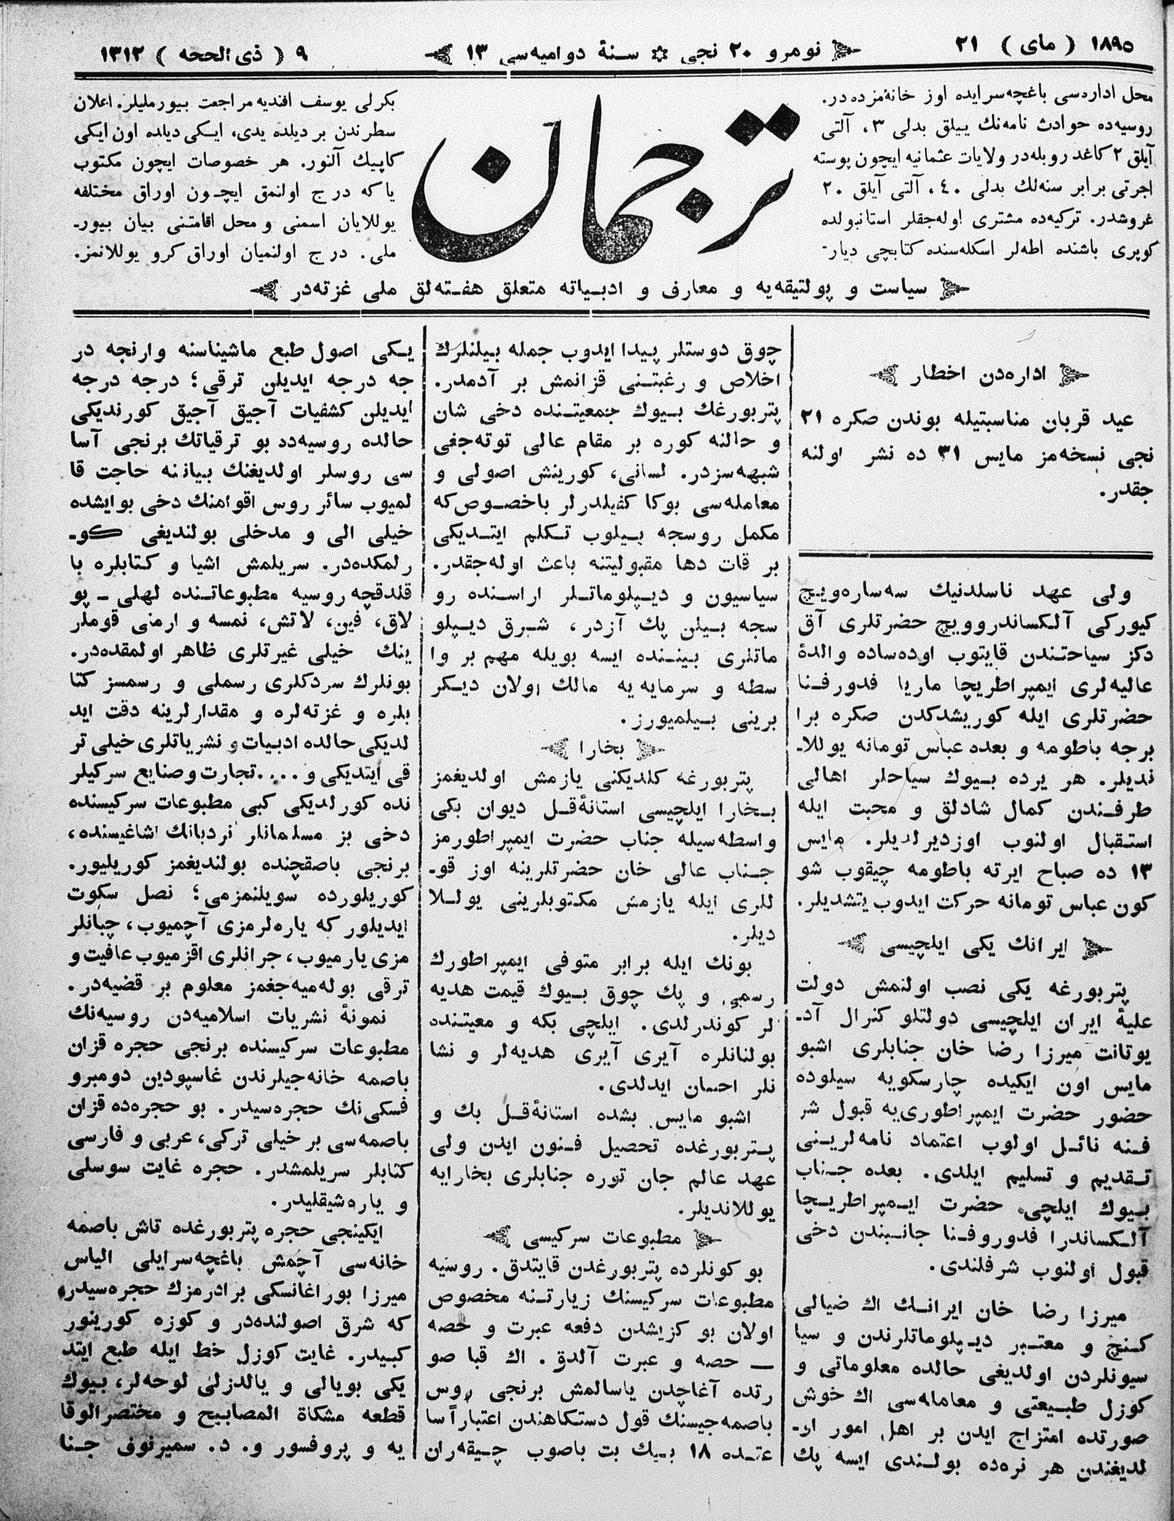 ١٨٩٥ ( مای ) ٢١
نومرو ٢٠ نجی ۞ سنهٔ دوامیه‌سی ١٣
٩ ( ذی الحجه ) ١٣١٢
محل اداره‌سی باغچه‌سرایده اوز خانه‌مزده در.
روسیه‌ده حوادث نامه‌نك ییللق بدلی ٣، آلتی
آیلق ٢ كاغد روبله‌در ولایات عثمانیه ایچون پوسته
اجرتی برابر سنه‌لك بدلی ٤٠، آلتی آیلق ٢٠
غروشدر. تركیه‌ده مشتری اوله‌جقلر استانبولده
كوپری باشنده اطه‌لر اسكله‌سنده كتابچی دیار-
ترجمان
بكرلی یوسف افندیه مراجعت بیورملیلر. اعلان
سطرندن بر دیلده یدی، ایكی دیلده اون ایكی
كاپیك آلنور. هر خصوصات ایچون مكتوب
یا كه درج اولنمق ایچون اوراق مختلفه
یوللایان اسمنی و محل اقامتنی بیان بیور-
ملی. درج اولنمیان اوراق كرو یوللانمز.
سیاست و پولتیقه‌یه و معارف و ادبیاته متعلق هفته‌لق ملی غزته‌در
اداره‌دن اخطار
عید قربان مناسبتیله بوندن صكره ٢١
نجی نسخه‌مز مایس ٣١ ده نشر اولنه
جقدر.
ولی عهد ناسلدنیك سه‌ساره‌ویچ
كیوركی آلكساندروویچ حضرتلری آق
دكز سیاحتندن قایتوب اوده‌ساده والدهٔ
عالیه‌لری ایمپراطریچا ماریا فدورفنا
حضرتلری ایله كوریشدكدن صكره برا
برجه باطومه و بعده عباس تومانه یوللا-
ندیلر. هر یرده بیوك سیاحلر اهالی
طرفندن كمال شادلق و محبت ایله
استقبال اولنوب اوزدیرلدیلر. مایس
١٣ ده صباح ایرته باطومه چیقوب شو
كون عباس تومانه حركت ایدوب یتشدیلر.
ایرانك یكی ایلچیسی
پتربورغه یكی نصب اولنمش دولت
علیهٔ ایران ایلچیسی دولتلو كنرال آد-
یوتانت میرزا رضا خان جنابلری اشبو
مایس اون ایكیده چارسكویه سیلوده
حضور حضرت ایمپراطوری‌یه قبول شر
فنه نائل اولوب اعتماد نامه‌لرینی
تقدیم و تسلیم ایلدی. بعده جناب
بیوك ایلچی حضرت ایمپراطریچا
آلكساندرا فدوروفنا جانبندن دخی
قبول اولنوب شرفلندی.
میرزا رضا خان ایرانك اك ضیالی
كنچ و معتبر دیپلوماتلرندن و سیا
سیونلردن اولدیغی حالده معلوماتی و
كوزل طبیعتی و معامله‌سی اك خوش
صورتده امتزاج ایدن بر اهل امور او-
لدیغندن هر نره‌ده بولندی ایسه پك
چوق دوستلر پیدا ایدوب جمله بیلنلرك
اخلاص و رغبتنی قزانمش بر آدمدر.
پتربورغك بیوك جمعیتنده دخی شان
و حالنه كوره بر مقام عالی توته‌جغی
شبهه‌سزدر. لسانی، كورینش اصولی و
معامله‌سی بوكا كفیلدرلر باخصوص كه
مكمل روسجه بیلوب تكلم ایتدیكی
بر قات دها مقبولیتنه باعث اوله‌جقدر.
سیاسیون و دیپلوماتلر اراسنده رو
سجه بیلن پك آزدر، شرق دیپلو
ماتلری بیننده ایسه بویله مهم بر وا
سطه و سرمایه‌یه مالك اولان دیكر
برینی بیلمیورز.
بخارا
پتربورغه كلدیكنی یازمش اولدیغمز
بخارا ایلچیسی استانهٔ‌قل دیوان بكی
واسطه‌سیله جناب حضرت ایمپراطورمز
جناب عالی خان حضرتلرینه اوز قو-
للری ایله یازمش مكتوبلرینی یوللا
دیلر.
بونك ایله برابر متوفی ایمپراطورك
رسمی و پك چوق بیوك قیمت هدیه
لر كوندرلدی. ایلچی بكه و معیتنده
بولنانلره آیری آیری هدیه‌لر و نشا
نلر احسان ایدلدی.
اشبو مایس بشده استانهٔ‌قل بك و
پتربورغده تحصیل فنون ایدن ولی
عهد عالم جان توره جنابلری بخارایه
یوللاندیلر.
مطبوعات سركیسی
بو كونلرده پتربورغدن قایتدق. روسیه
مطبوعات سركیسنك زیارتنه مخصوص
اولان بو كزیشدن دفعه عبرت و حصه
— حصه و عبرت آلدق. اك قبا صو
رتده آغاچدن یاسالمش برنجی روس
باصمه‌جیسنك قول دستكاهندن اعتباراً سا
عتده ١٨ بیك بت باصوب چیقه‌ران
یكی اصول طبع ماشیناسنه وارنجه در
جه درجه ایدیلن ترقی؛ درجه درجه
ایدیلن كشفیات آجیق آجیق كورندیكی
حالده روسیه‌ده بو ترقیاتك برنجی آسا
سی روسلر اولدیغنك بیاننه حاجت قا
لمیوب سائر روس اقوامنك دخی بو ایشده
خیلی الی و مدخلی بولندیغی كو-
رلمكده‌در. سریلمش اشیا و كتابلره با
قلدقچه روسیه مطبوعاتنده لهلی - پو
لاق، فین، لاتش، نمسه و ارمنی قوملر
ینك خیلی غیرتلری ظاهر اولمقده‌در.
بونلرك سردكلری رسملی و رسمسز كتا
بلره و غزته‌لره و مقدارلرینه دقت اید
لدیكی حالده ادبیات و نشریاتلری خیلی تر
قی ایتدیكی و .... تجارت و صنایع سركیلر
نده كورلدیكی كبی مطبوعات سركیسنده
دخی بز مسلمانلر نردبانك اشاغیسنده،
برنجی باصقچنده بولندیغمز كوریلیور.
كوریلورده سویلنمزمی؛ نصل سكوت
ایدیلور كه یاره‌لرمزی آچمیوب، چبانلر
مزی یارمیوب، جرانلری اقزمیوب عافیت و
ترقی بوله‌میه‌جغمز معلوم بر قضیه‌در.
نمونهٔ نشریات اسلامیه‌دن روسیه‌نك
مطبوعات سركیسنده برنجی حجره قزان
باصمه خانه‌جیلرندن غاسپودین دومبرو
فسكی‌نك حجره سیدر. بو حجره‌ده قزان
باصمه‌سی بر خیلی تركی، عربی و فارسی
كتابلر سریلمشدر. حجره غایت سوسلی
و یاره‌شیقلیدر.
ایكینجی حجره پتربورغده تاش باصمه
خانه‌سی آچمش باغچه‌سرایلی الیاس
میرزا بوراغانسكی برادرمزك حجره‌سیدر
كه شرق اصولنده‌در و كوزه كورینور
كبیدر. غایت كوزل خط ایله طبع ایتد
یكی بویالی و یالدزلی لوحه‌لر، بیوك
قطعه مشكاة المصابیح و مختصر الوقا
یه و پروفسور و. د. سمیرنوف جنا